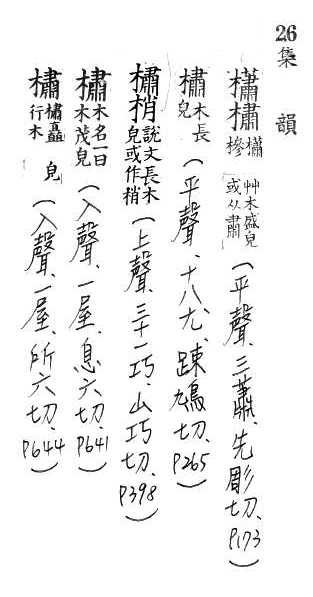 26
集韻
櫹橚 櫹槮艸木盛皃或从肅(平聲、三蕭、先彫切、P173)
橚 木長皃(平聲、十八尤、疎鳩切、P265)
橚梢 說文長木皃或作梢(上聲、三十一巧、山巧切、P398)
橚 木名一曰木茂皃(入聲、一屋、息六切、P641)
橚 橚矗行木皃(入聲、一屋、所六切、P644)